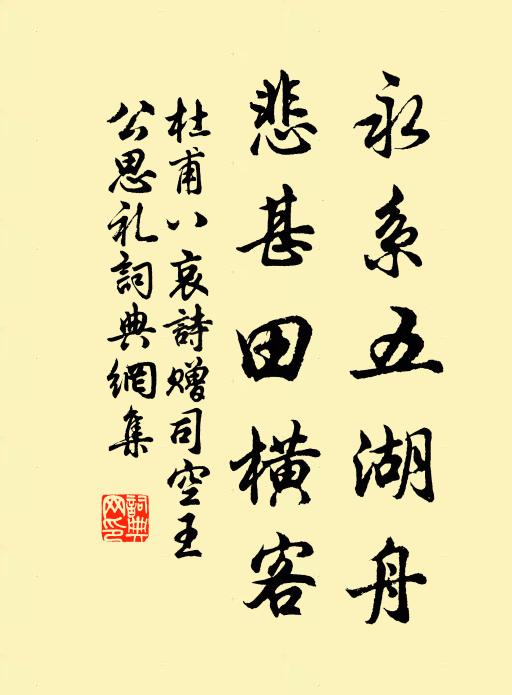 永系五湖舟
悲甚田橫客
杜甫八哀詩贈司空王
公思礼詞典網集
詞典網印